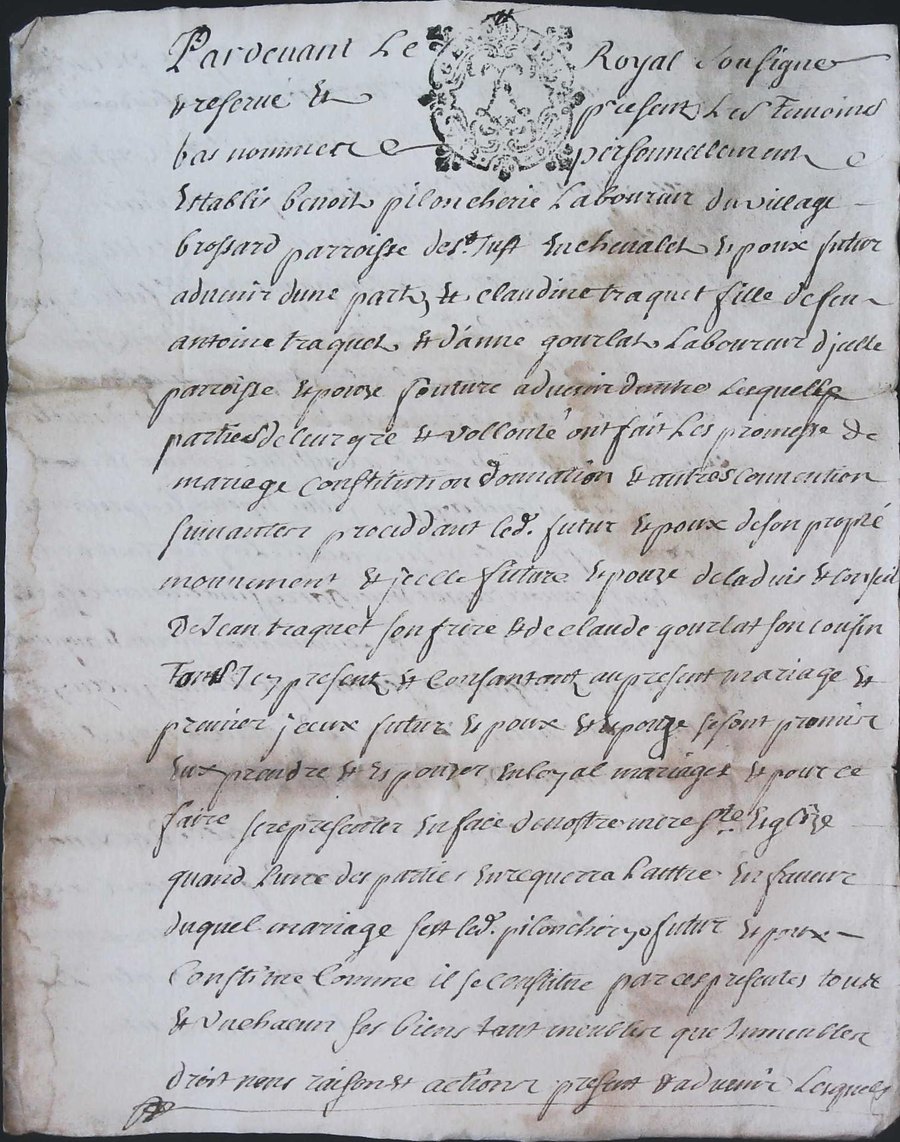 Pardevant Le Royal Sousigne
& reserve & present Les Temoins
bas nommere personnellement
Establis benoit piloncherie Laboureur du village
brossard parroisse de St. Just En chevalet Epoux futur
advenir dune part, & claudine traquet fille defeu
antoine traquet & d'anne gourlat Laboureur d jcelle
parroisse Epouze fouture advenir dautre Lesquelle
parties deleurgré & vollonté ont fait Les promesse de
mariege constitution donnation & autres convention
suivanter proceddant led. futur Epoux deson propré
mouvement & jcelle future Epouze deladvis & Conseil
De Jean traquet son frere & de claude gourlat son cousin
Tous Jcy present & Consantant au present mariage &
premier jceux futur Epoux & Epouze sesont promir
Eux prendre & Espouzer Enloyal mariages & pour ce
faire se representer En face denostre mere Ste Eiglize
quand Lune des parties Enrequerra Lauttre En faveur
duquel mariage sest led. pilonchery futur Epoux
Constitue Comme il se constitue par ces presentes tous
& Un chacun ses biens tant meubles que Jmmeubles
droit noms raison & actions present & advenir Lesquels